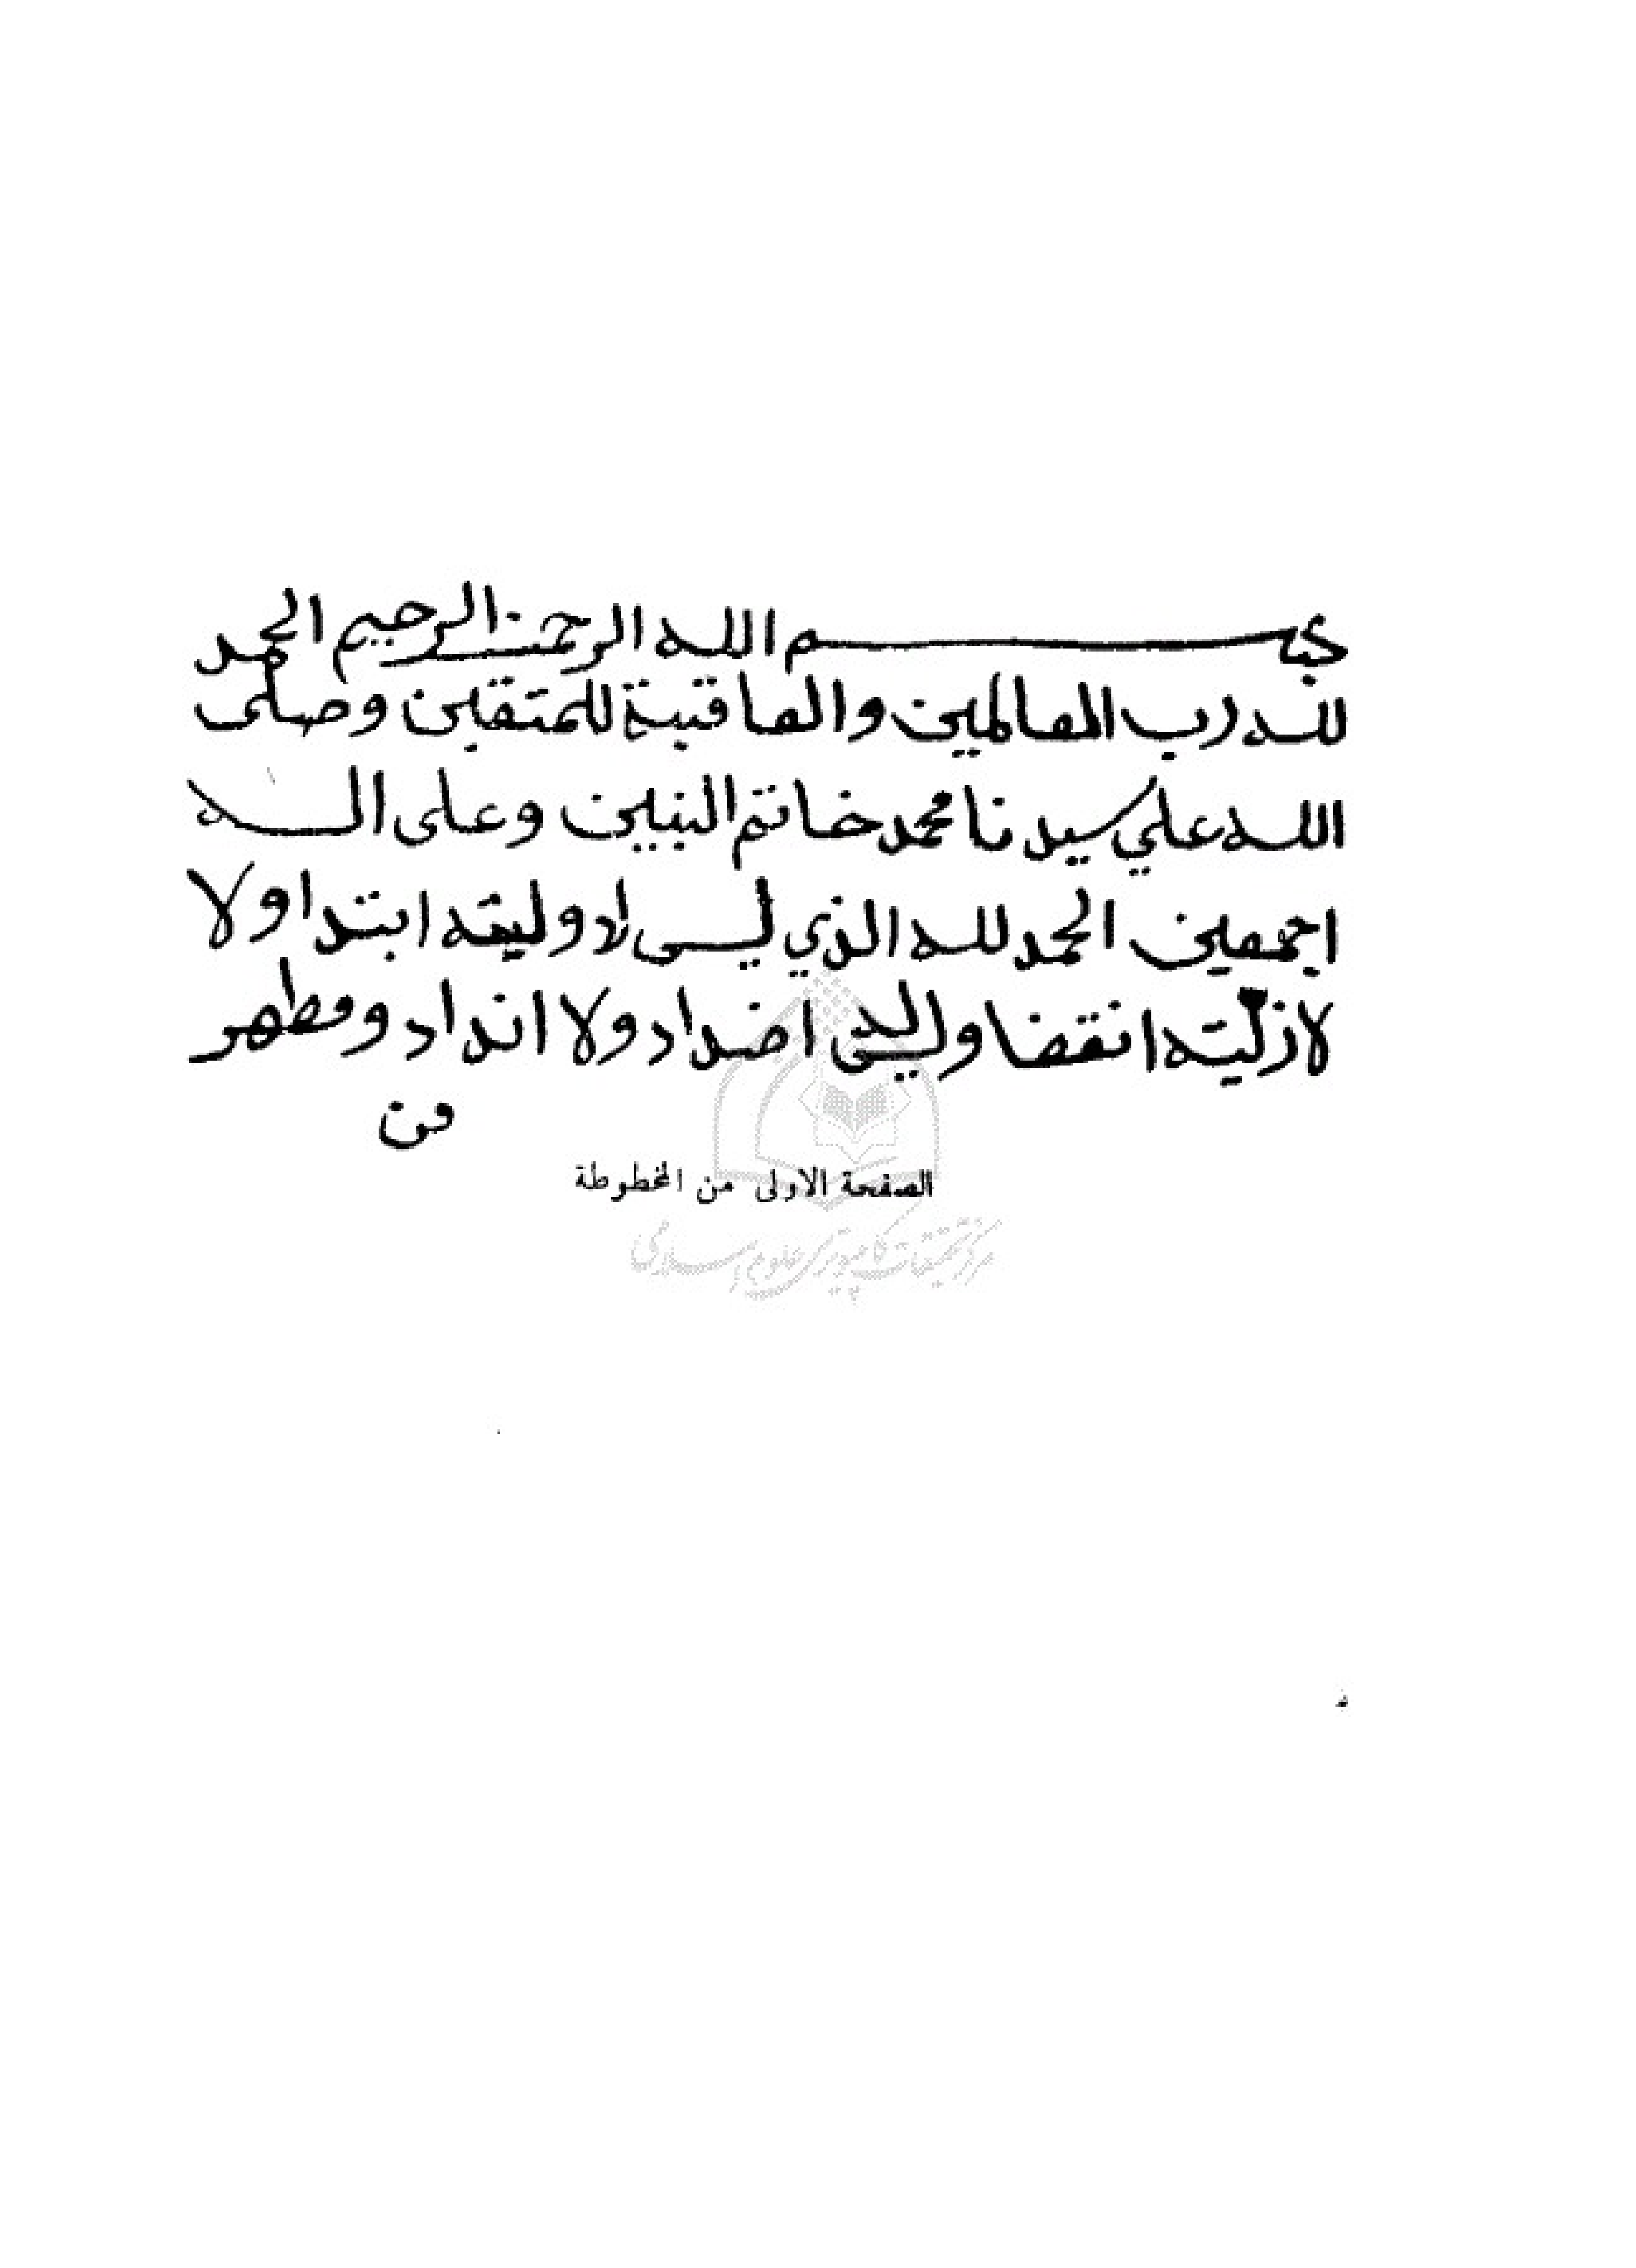 بسم الله الرحمن الرحيم الحمد
لله رب العالمين والعاقبة للمتقين وصلى
الله علي سيدنا محمد خاتم النبيين وعلى اله
اجمعين الحمد لله الذي ليس لاوليته ابتدا ولا
لازليته انقضا وليس اضداد ولا انداد ومطهر
من
الصفحة الاولى من المخطوطة
مركز تحقيقات كامپيوتري علوم اسلامي